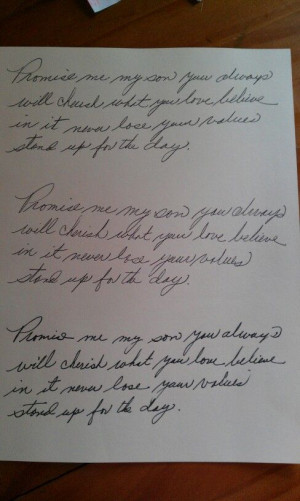 Promise me my son you always
will cherish what you love, believe
in it never lose your values
stand up for the day.
Promise me my son you always
will cherish what you love believe
in it never lose your values
stand up for the day.
Promise me my son you always
will cherish what you love, believe
in it never lose your values
stand up for the day.